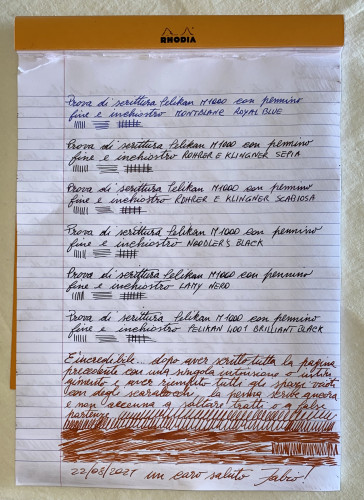 RHODIA
Prova di scrittura Pelikan M1000 con pennino
fine e inchiostro MONTBLANC ROYAL BLUE
Prova di scrittura Pelikan M1000 con pennino
fine e inchiostro ROHRER E KLINGNER SEPIA
Prova di scrittura Pelikan M1000 con pennino
fine e inchiostro ROHRER E KLINGNER SCABIOSA
Prova di scrittura Pelikan M1000 con pennino
fine e inchiostro NOODLER'S BLACK
Prova di scrittura Pelikan M1000 con pennino
fine e inchiostro LAMY NERO
Prova di scrittura Pelikan M1000 con pennino
fine e inchiostro PELIKAN 4001 BRILLIANT BLACK
È incredibile... dopo aver scritto tutta la pagina
precedente con una singola intinzione o intin
gimento e aver riempito tutti gli spazi vuoti
con degli scarabocchi la penna scrive ancora
e non accenna a saltare tratti o a false
partenze
22/05/2021 un caro saluto Fabio!